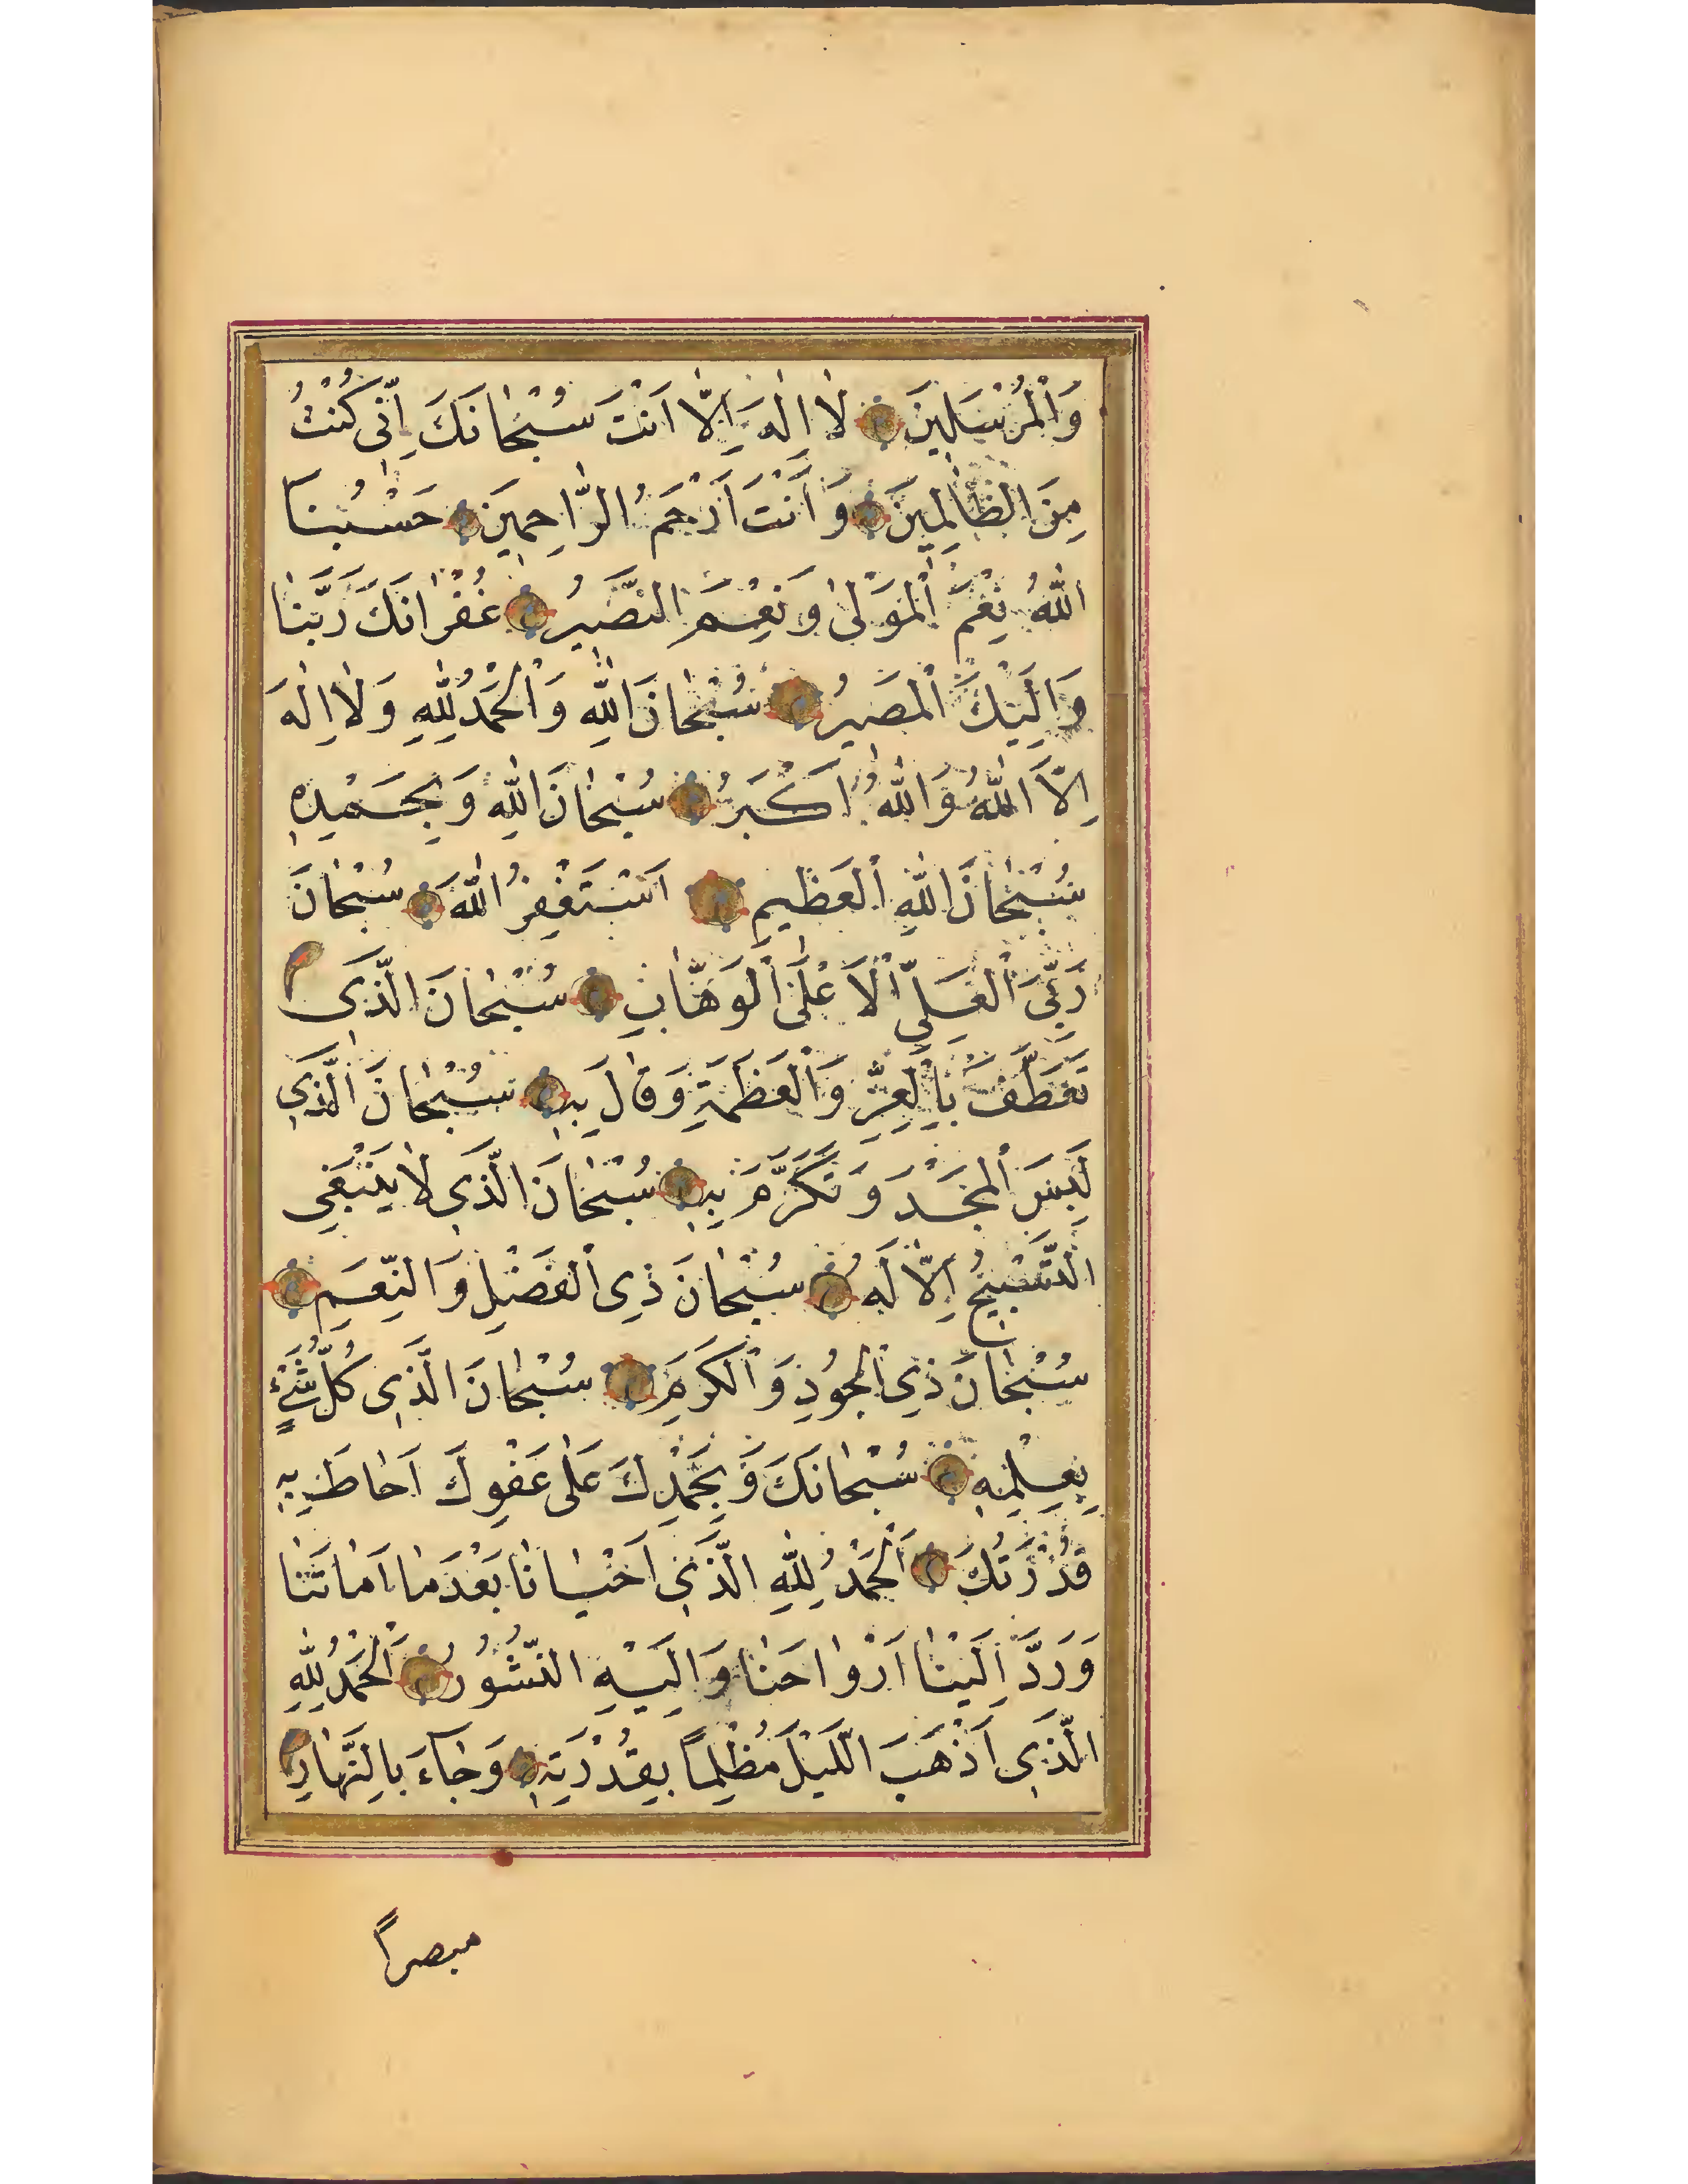 وَالْمُرْسَلِينَ لَا اِلٰهَ اِلَّا اَنْتَ سُبْحَانَكَ اِنِّى كُنْتُ
مِنَ الظَّالِمِينَ وَاَنْتَ اَرْحَمُ الرَّاحِمِينَ حَسْبُنَا
اللّٰهُ نِعْمَ الْمَوْلٰى وَنِعْمَ النَّصِيرُ غُفْرَانَكَ رَبَّنَا
وَاِلَيْكَ الْمَصِيرُ سُبْحَانَ اللّٰهِ وَالْحَمْدُ لِلّٰهِ وَلَا اِلٰهَ
اِلَّا اللّٰهُ وَاللّٰهُ اَكْبَرُ سُبْحَانَ اللّٰهِ وَبِحَمْدِهِ
سُبْحَانَ اللّٰهِ الْعَظِيمِ اَسْتَغْفِرُ اللّٰهَ سُبْحَانَ
رَبِّىَ الْعَلِىِّ الْاَعْلَى الْوَهَّابِ سُبْحَانَ الَّذِى
تَعَطَّفَ بِالْعِزِّ وَالْعَظَمَةِ وَقَالَ بِهِ سُبْحَانَ الَّذِى
لَبِسَ الْمَجْدَ وَتَكَرَّمَ بِهِ سُبْحَانَ الَّذِى لَا يَنْبَغِى
التَّسْبِيحُ اِلَّا لَهُ سُبْحَانَ ذِى الْفَضْلِ وَالنِّعَمِ
سُبْحَانَ ذِى الْجُودِ وَالْكَرَمِ سُبْحَانَ الَّذِى كُلُّ شَىْءٍ
بِعِلْمِهِ سُبْحَانَكَ وَبِحَمْدِكَ عَلٰى عَفْوِكَ اَحَاطَ بِهِ
قُدْرَتُكَ اَلْحَمْدُ لِلّٰهِ الَّذِى اَحْيَانَا بَعْدَ مَا اَمَاتَنَا
وَرَدَّ اِلَيْنَا اَرْوَاحَنَا وَاِلَيْهِ النُّشُورُ اَلْحَمْدُ لِلّٰهِ
الَّذِى اَذْهَبَ الَّيْلَ مُظْلِمًا بِقُدْرَتِهِ وَجَاءَ بِالنَّهَارِ
مبصراً